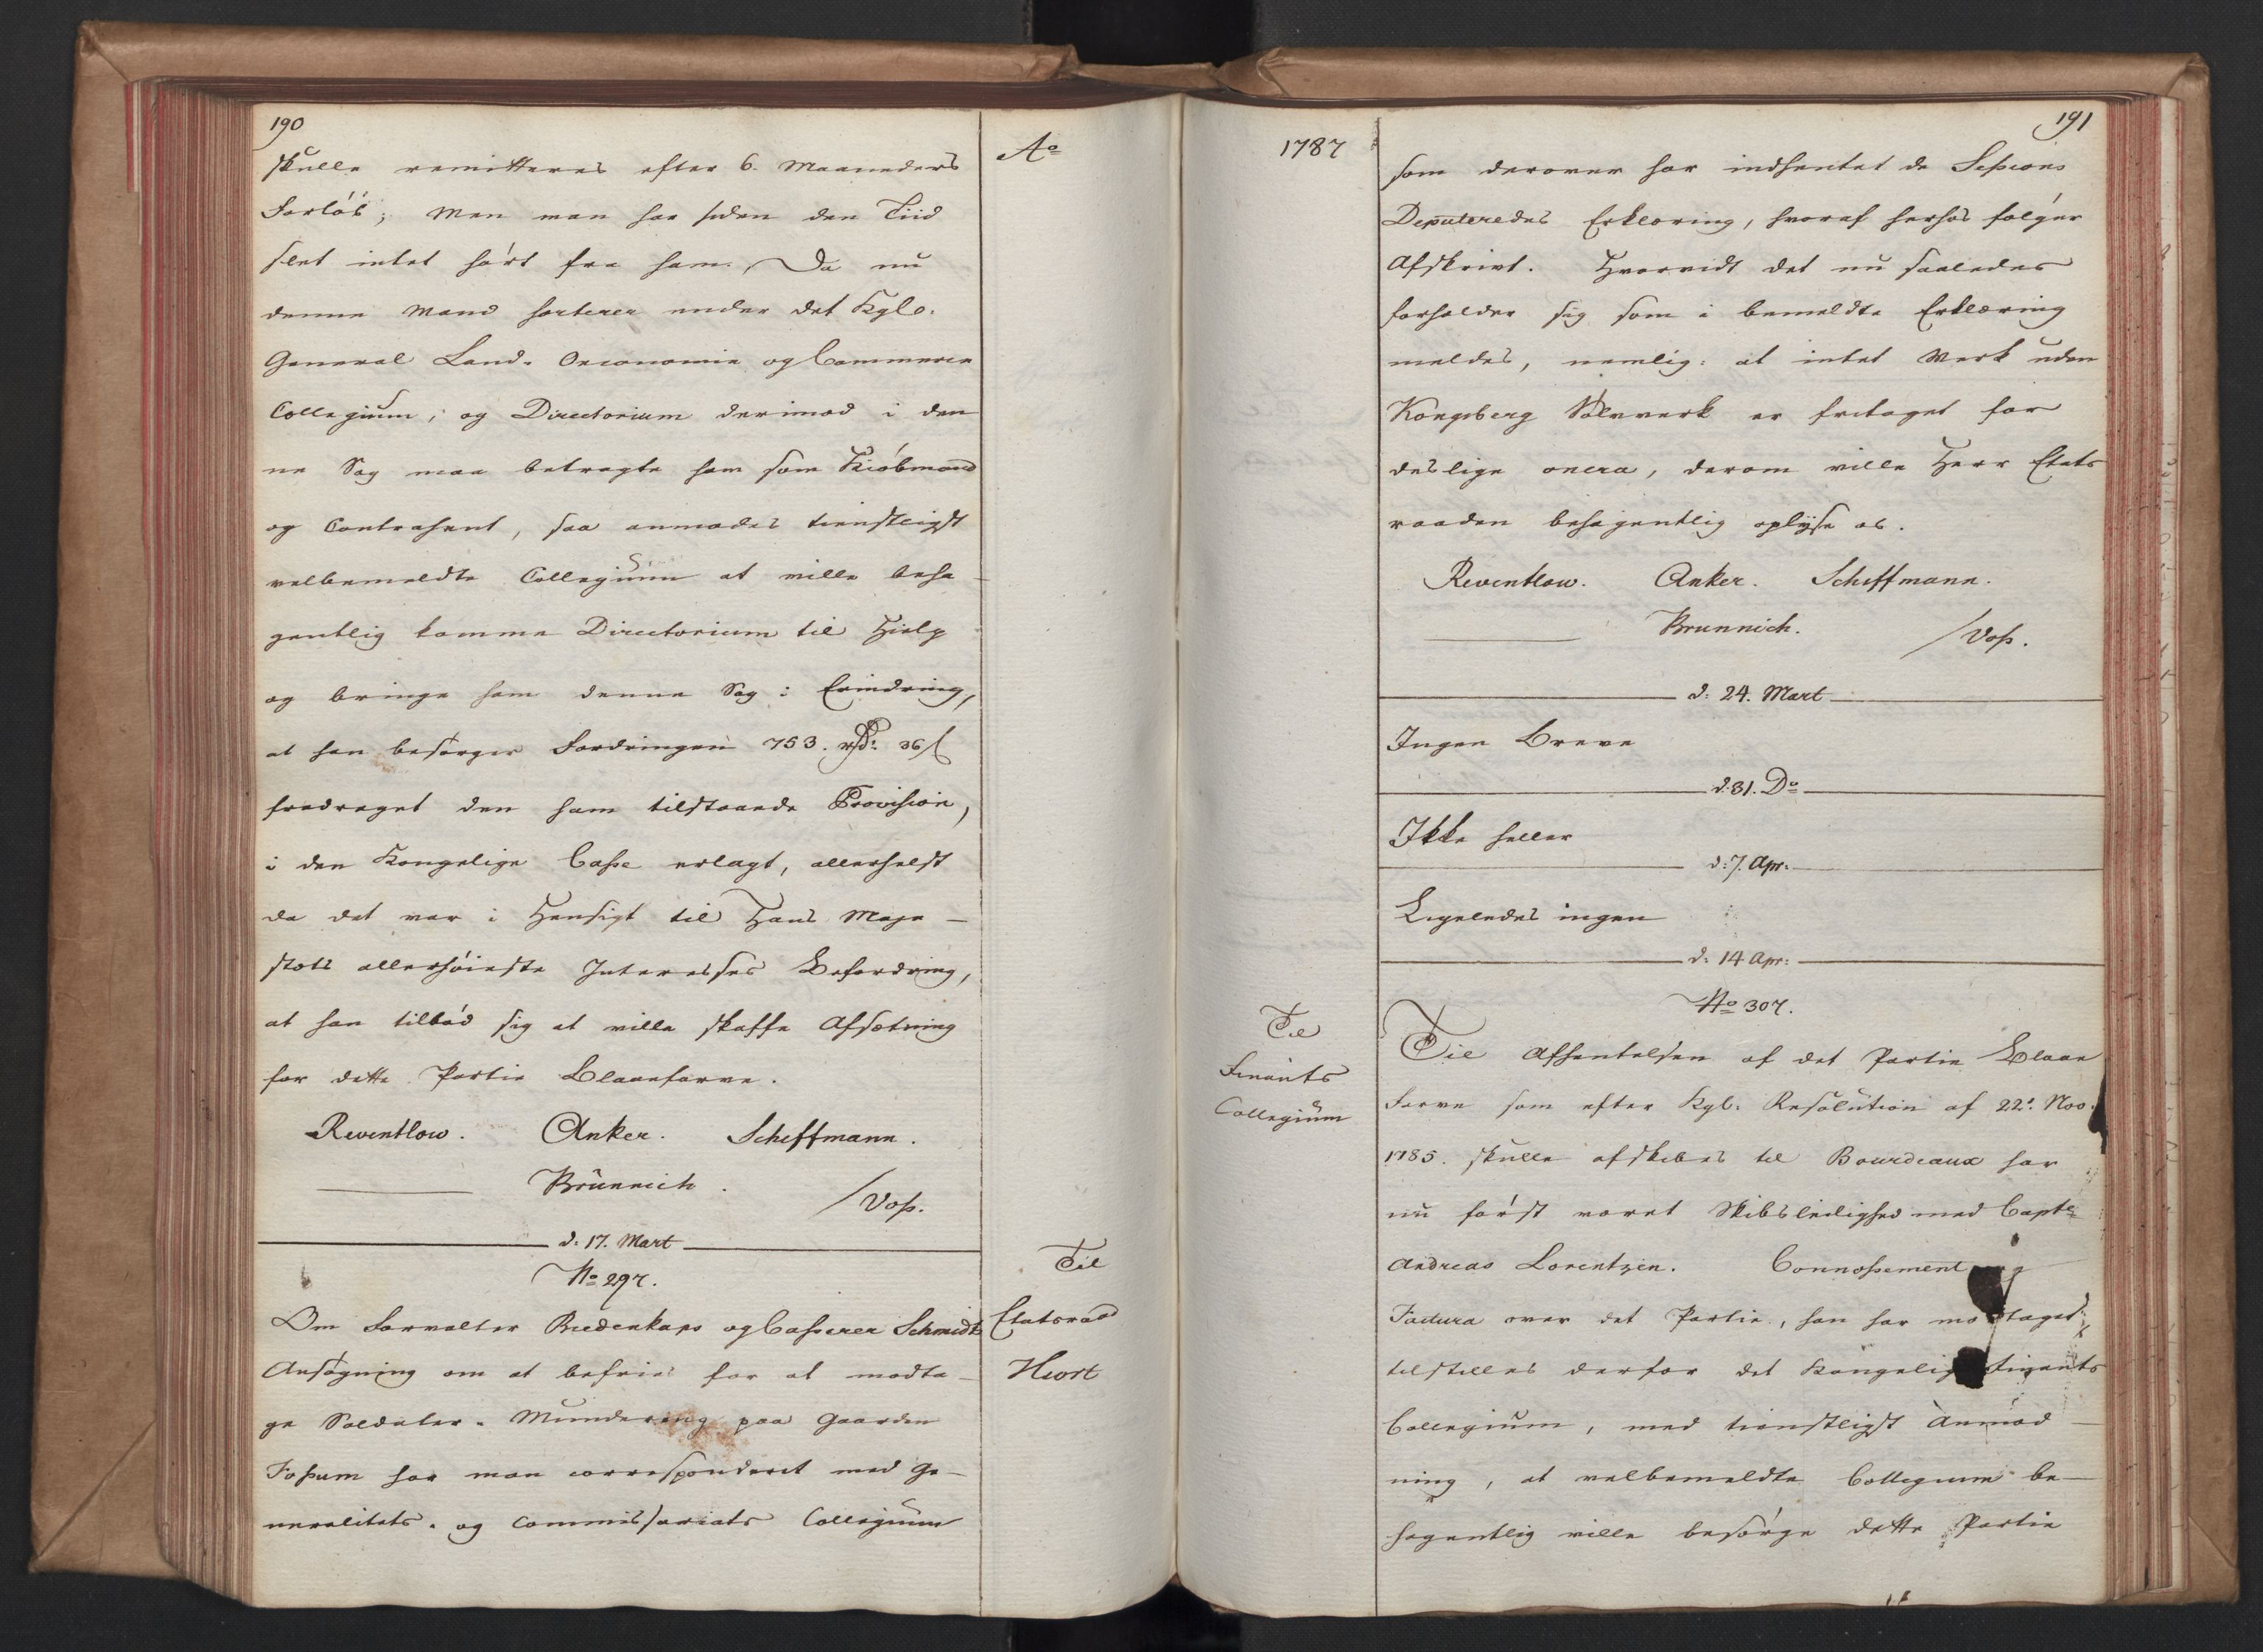 190
Ao
skulle remitteres efter 6. Maaneders
Forløb; Men man har siden den Tiid
slet intet hørt fra ham. Da nu
denne Mand sorterer under det Kgle.
General Land- Oeconomie og Commerce
Collegium, og Directorium derimod i den
ne Sag maa betragte ham som Kiøbmand
og Contrahent, saa anmodes tienstligst
velbemeldte Collegium at ville beha-
gentlig komme Directorium til Hielp
og bringe ham denne Sag i Erindring,
at han besørger Fordringen 753. rd: 36 s
fradraget den ham tilstaaede Provision,
i den Kongelige Casse erlagt, allerhelst
da det var i Hensigt til Hans Maje-
stæts allerhøieste Interesses Befordring,
at han tilbød sig at ville skaffe Afsætning
for dette Partie Blaaefarve.
Reventlow. Anker. Schiffmann.
Brünnich. /Voss.
d. 17. Mart
No 297.
Til
Etatsraad
Hiort
Om Forvalter Bredenkaps og Casserer Schmidts
Ansøgning om at befries for at modta-
ge Soldater-Mundering paa Gaarden
Fossum har man correspondert med Ge-
neralitets- og Commissariats Collegium
1787
191
som derover har indhentet de Sessions
Deputeredes Erklæring, hvoraf herhos følger
Afskrivt. Hvorvidt det nu saaledes
forholder sig som i bemeldte Erklæring
meldes, nemlig: at intet Værk uden
Kongsberg Sølvværk er fritaget for
deslige onera, derom ville Herr Etats
raaden behagentlig oplyse os.
Reventlow. Anker. Schiffmann.
Brunnich. /Voss.
d. 24. Mart
Ingen Breve
d. 31. Do
Ikke heller
d. 7. Apr:
Ligeledes ingen
d. 14 Apr:
No 307.
Til
Finants
Collegium
Til Afhentelsen af det Partie Blaae
Farve som efter Kgl: Resolution af 22. Nov.
1785. skulle afskibes til Bourdeaux har
nu først været Skibsleilighed med Capt:
Andreas Lorentzen. Connossement og
Factura over det Partie, han har modtaget,
tilstilles derfor det Kongelige Finants
Collegium, med tienstligst Anmod-
ning, at velbemeldte Collegium be-
hagentlig ville besørge dette Partie